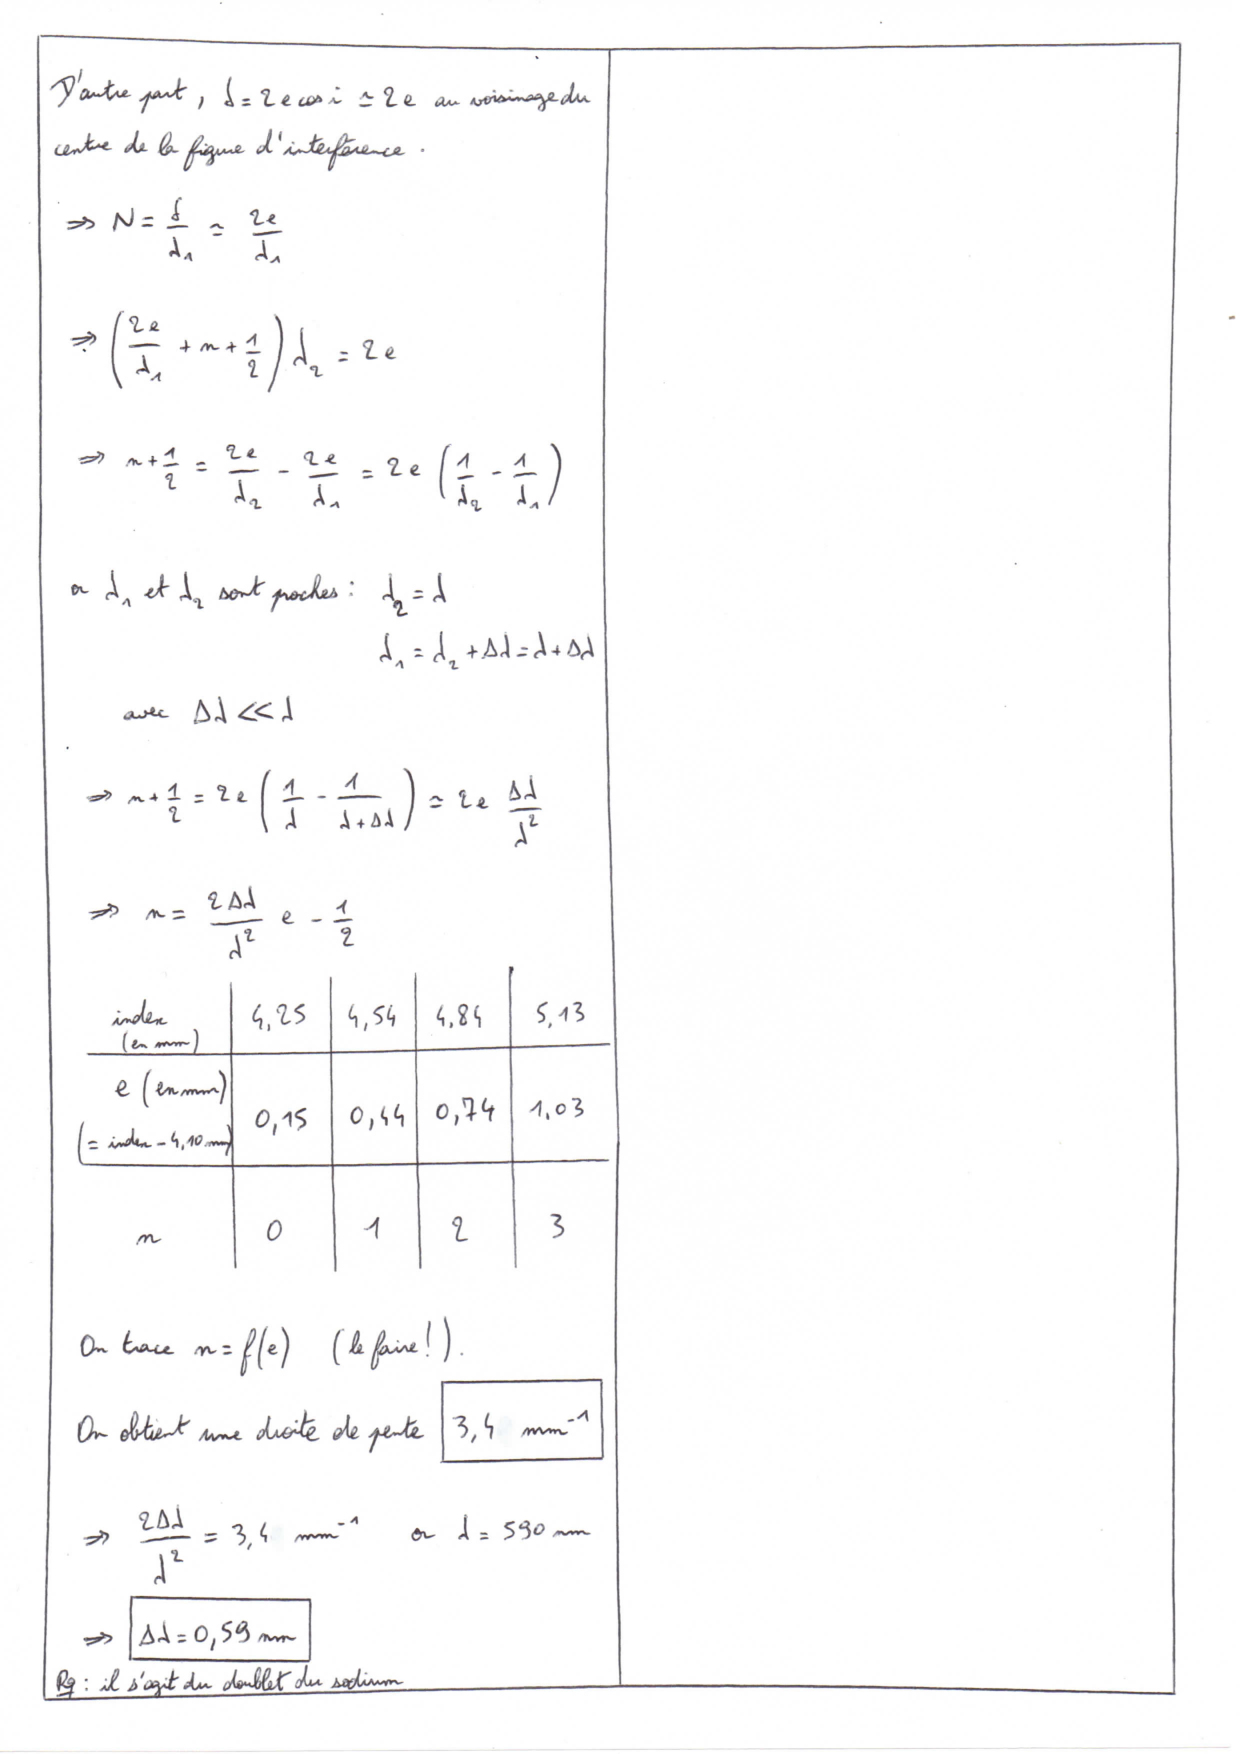 D'autre part, δ = 2e cos i ≃ 2e au voisinage du
centre de la figure d'interférence.
⇒ N = δ/λ₁ ≃ 2e/λ₁
⇒ (2e/λ₁ + n + 1/2) λ₂ = 2e
⇒ n + 1/2 = 2e/λ₂ - 2e/λ₁ = 2e (1/λ₂ - 1/λ₁)
or λ₁ et λ₂ sont proches : λ₂ = λ
λ₁ = λ₂ + Δλ = λ + Δλ
avec Δλ << λ
⇒ n + 1/2 = 2e (1/λ - 1/(λ + Δλ)) ≃ 2e Δλ/λ²
⇒ n = 2Δλ/λ² e - 1/2
index (en mm) 4,25 4,54 4,84 5,13
e (en mm) (= index - 4,10 mm) 0,15 0,44 0,74 1,03
n 0 1 2 3
On trace n = f(e) (le faire !).
On obtient une droite de pente 3,4 mm⁻¹
⇒ 2Δλ/λ² = 3,4 mm⁻¹ or λ = 590 nm
⇒ Δλ = 0,59 nm
Rq : il s'agit du doublet du sodium